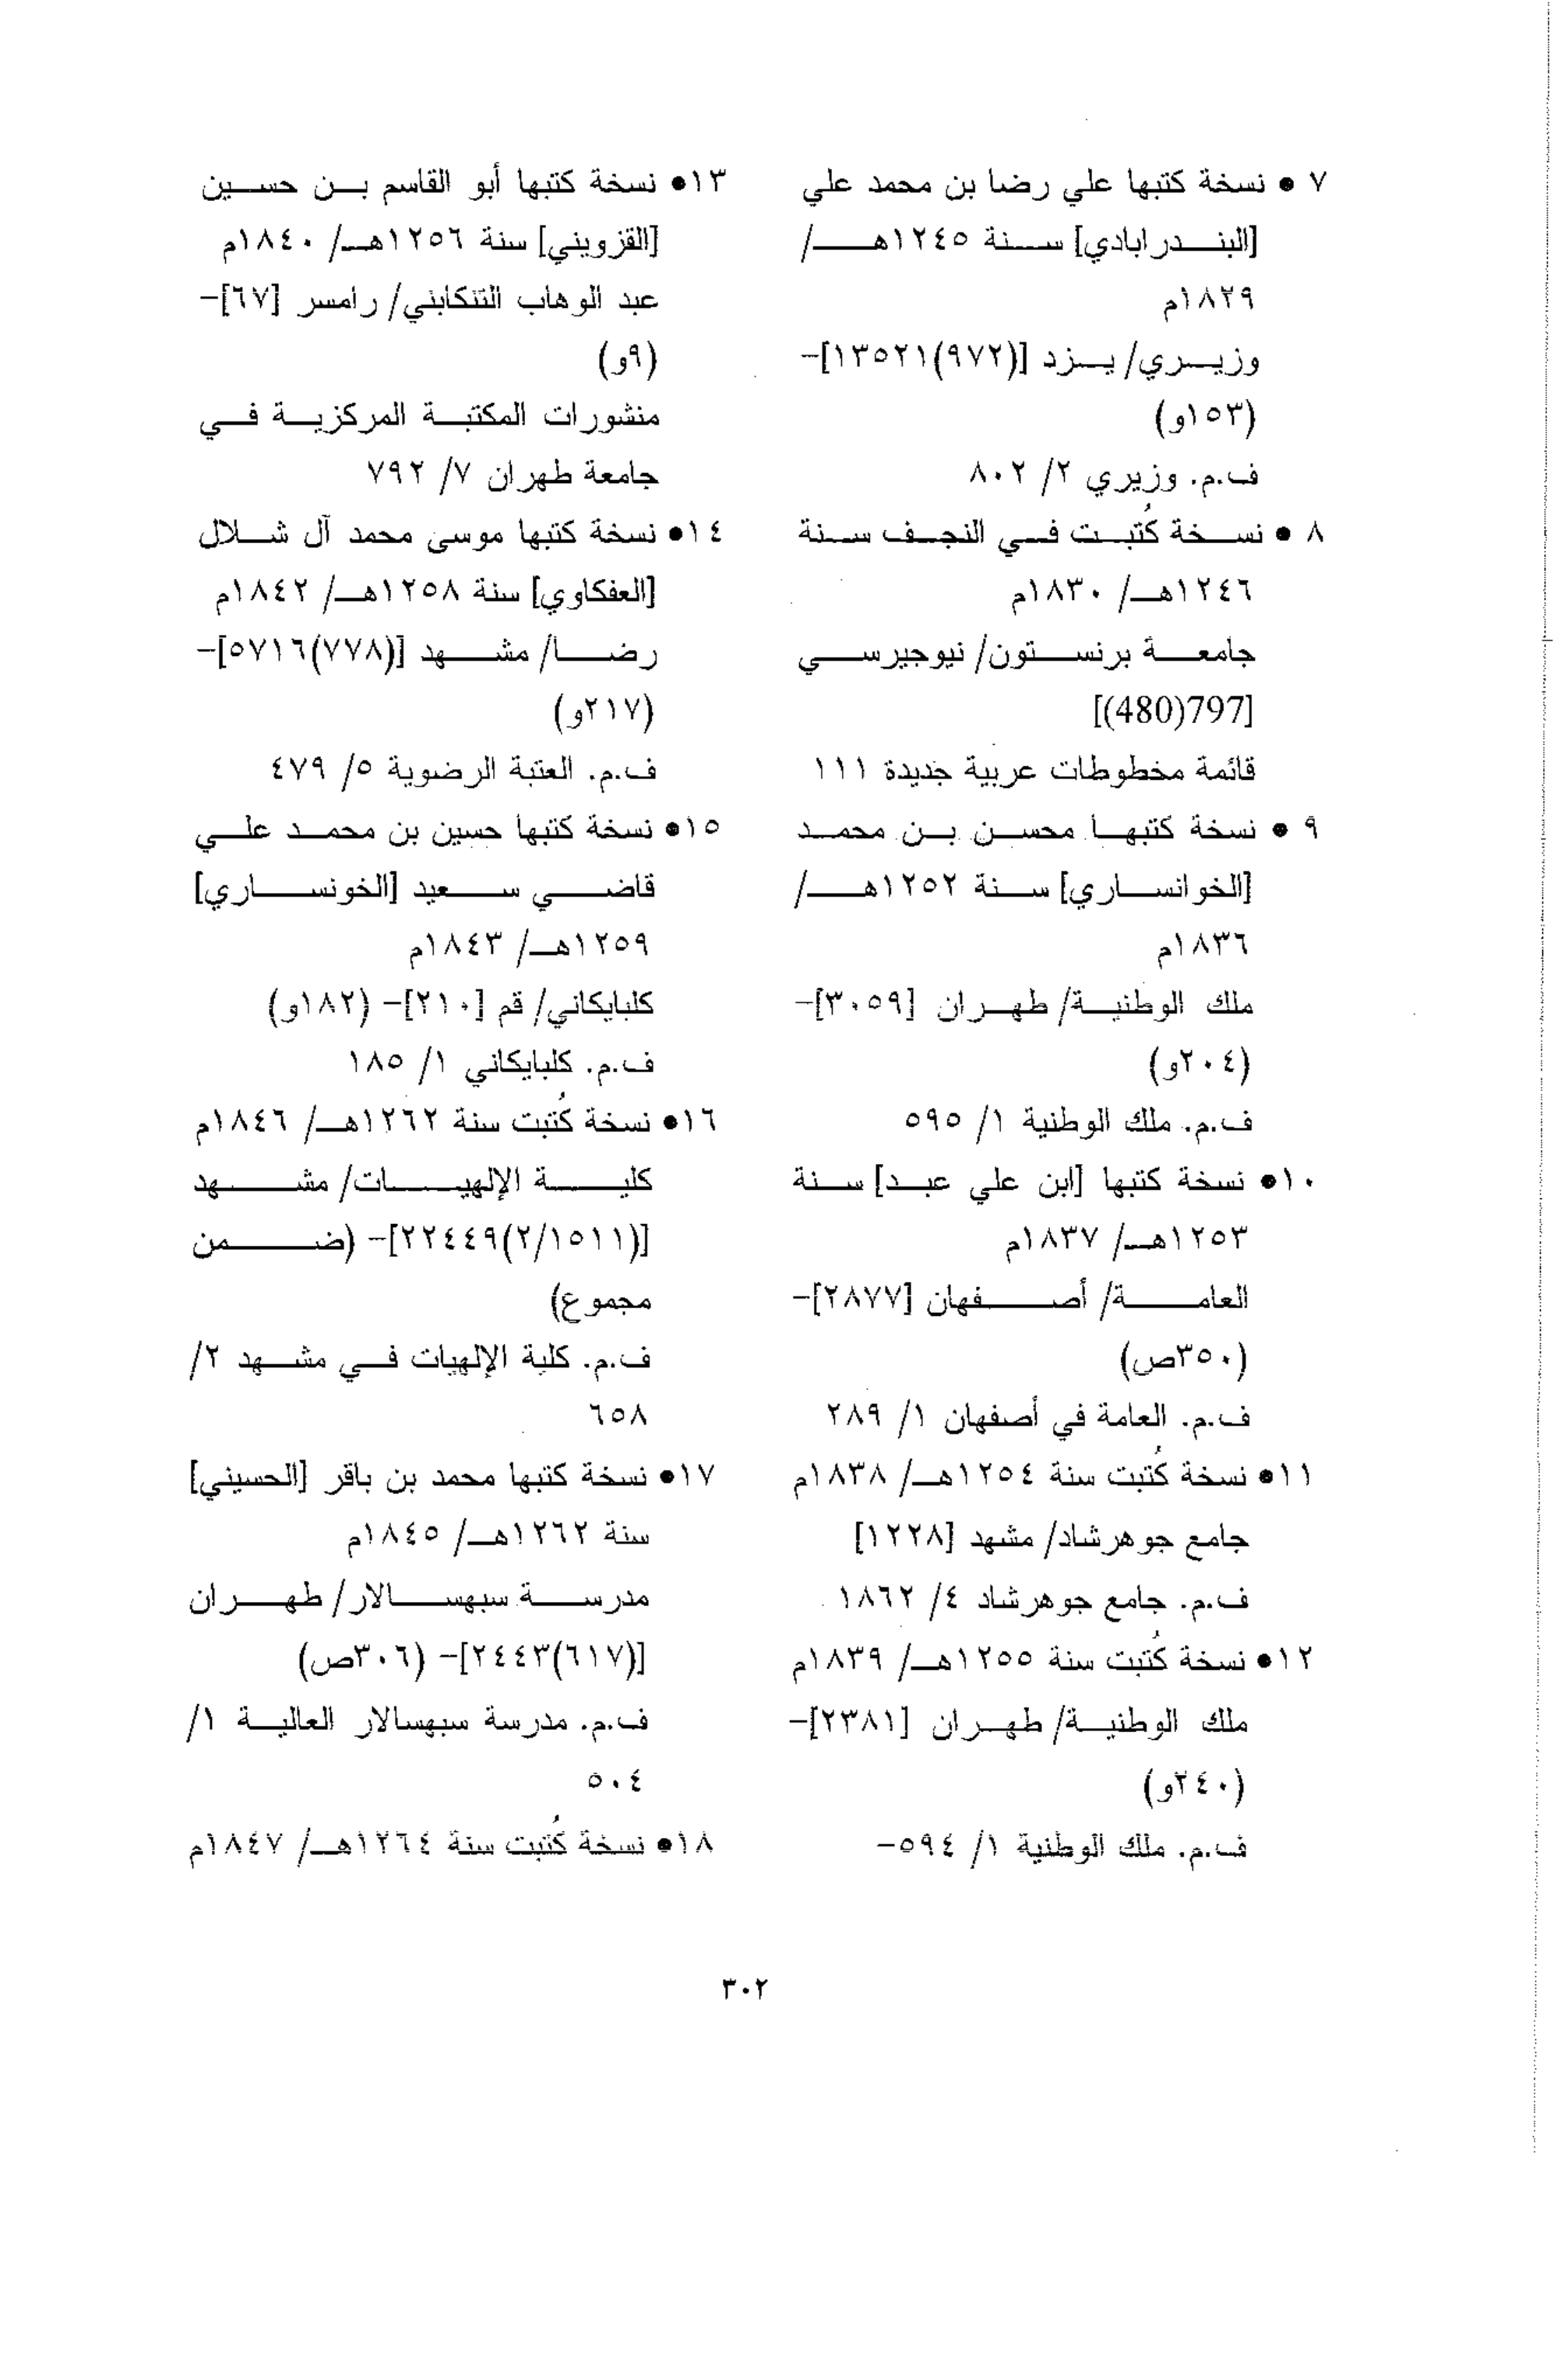 ٧ • نسخة كتبها علي رضا بن محمد علي
[البندرابادي] سنة ١٢٤٥هـ/
١٨٢٩م
وزيري/ يزد [(٩٧٢)١٣٥٢١]-
(١٥٣و)
ف.م. وزيري ٢/ ٨٠٢
٨ • نسخة كُتبت في النجف سنة
١٢٤٦هـ/ ١٨٣٠م
جامعة برنستون/ نيوجيرسي
[(480)797]
قائمة مخطوطات عربية جديدة ١١١
٩ • نسخة كتبها محسن بن محمد
[الخوانساري] سنة ١٢٥٢هـ/
١٨٣٦م
ملك الوطنية/ طهران [٣٠٥٩]-
(٢٠٤و)
ف.م. ملك الوطنية ١/ ٥٩٥
١٠• نسخة كتبها [ابن علي عبد] سنة
١٢٥٣هـ/ ١٨٣٧م
العامة/ أصفهان [٢٨٧٧]-
(٣٥٠ص)
ف.م. العامة في أصفهان ١/ ٢٨٩
١١• نسخة كُتبت سنة ١٢٥٤هـ/ ١٨٣٨م
جامع جوهرشاد/ مشهد [١٢٢٨]
ف.م. جامع جوهرشاد ٤/ ١٨٦٢
١٢• نسخة كُتبت سنة ١٢٥٥هـ/ ١٨٣٩م
ملك الوطنية/ طهران [٢٣٨١]-
(٢٤٠و)
ف.م. ملك الوطنية ١/ ٥٩٤-
١٣• نسخة كتبها أبو القاسم بن حسين
[القزويني] سنة ١٢٥٦هـ/ ١٨٤٠م
عبد الوهاب التنكابني/ رامسر [٦٧]-
(٩و)
منشورات المكتبة المركزية في
جامعة طهران ٧/ ٧٩٢
١٤• نسخة كتبها موسى محمد آل شلال
[العفكاوي] سنة ١٢٥٨هـ/ ١٨٤٢م
رضا/ مشهد [(٧٧٨)٥٧١٦]-
(٢١٧و)
ف.م. العتبة الرضوية ٥/ ٤٧٩
١٥• نسخة كتبها حسين بن محمد علي
قاضي سعيد [الخونساري]
١٢٥٩هـ/ ١٨٤٣م
كلبايكاني/ قم [٢١٠]- (١٨٢و)
ف.م. كلبايكاني ١/ ١٨٥
١٦• نسخة كُتبت سنة ١٢٦٢هـ/ ١٨٤٦م
كلية الإلهيات/ مشهد
[(٢/١٥١١)٢٢٤٤٩]- (ضمن
مجموع)
ف.م. كلية الإلهيات في مشهد ٢/
٦٥٨
١٧• نسخة كتبها محمد بن باقر [الحسيني]
سنة ١٢٦٢هـ/ ١٨٤٥م
مدرسة سبهسالار/ طهران
[(٦١٧)٢٤٤٣]- (٣٠٦ص)
ف.م. مدرسة سبهسالار العالية ١/
٥٠٤
١٨• نسخة كُتبت سنة ١٢٦٤هـ/ ١٨٤٧م
٣٠٢